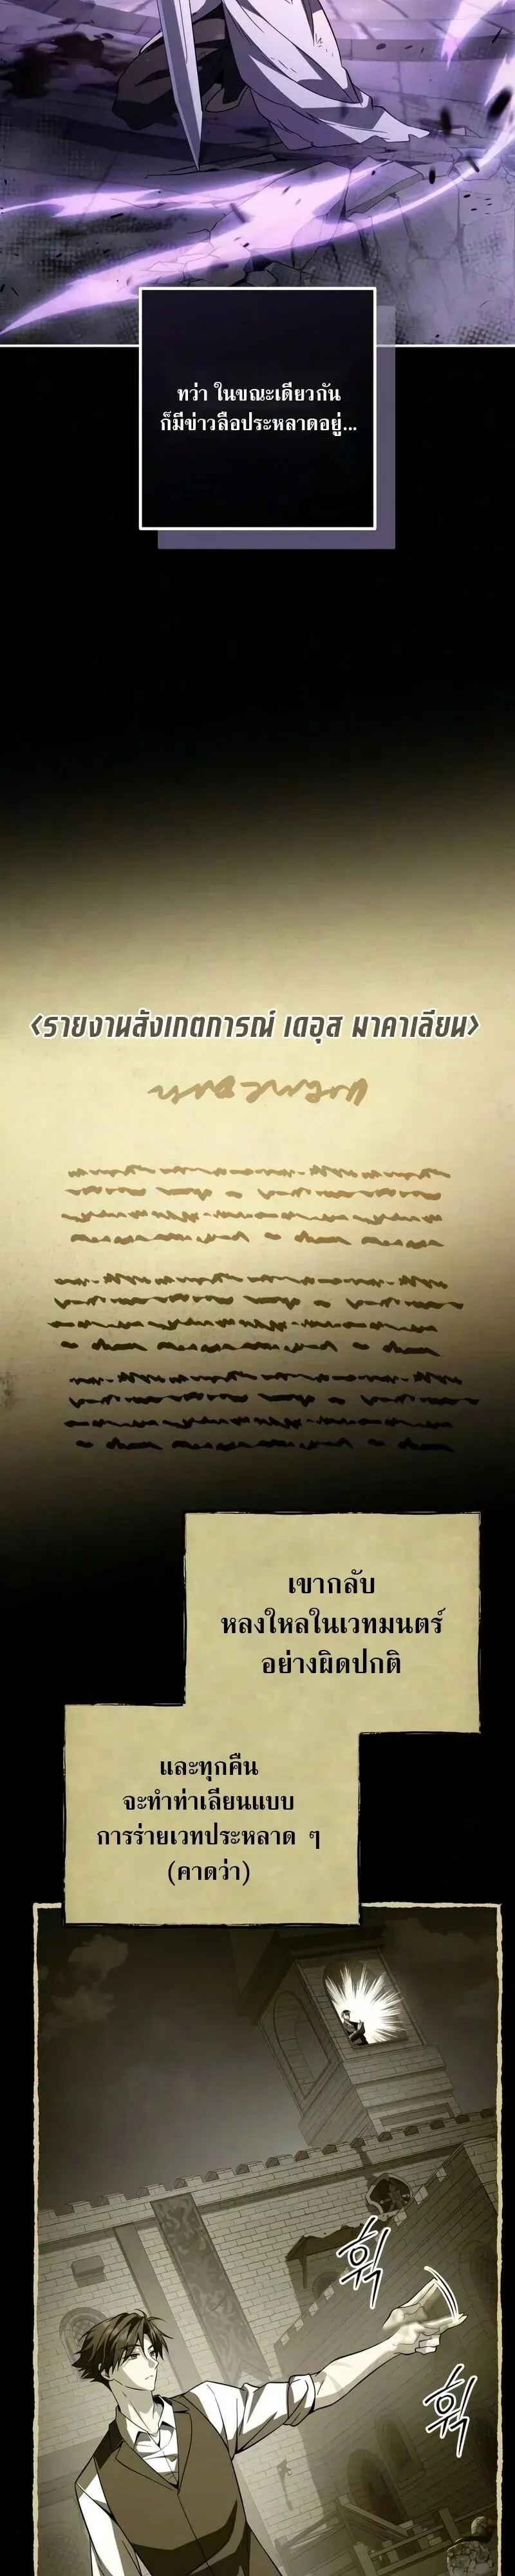 ทว่า ในขณะเดียวกัน
ก็มีข่าวลือประหลาดอยู่...
<รายงานสังเกตการณ์ เดอุส มาคาเลียน>
เขากลับ
หลงใหลในเวทมนตร์
อย่างผิดปกติ
และทุกคืน
จะทำท่าเลียนแบบ
การร่ายเวทประหลาด ๆ
(คาดว่า)
휙
휙